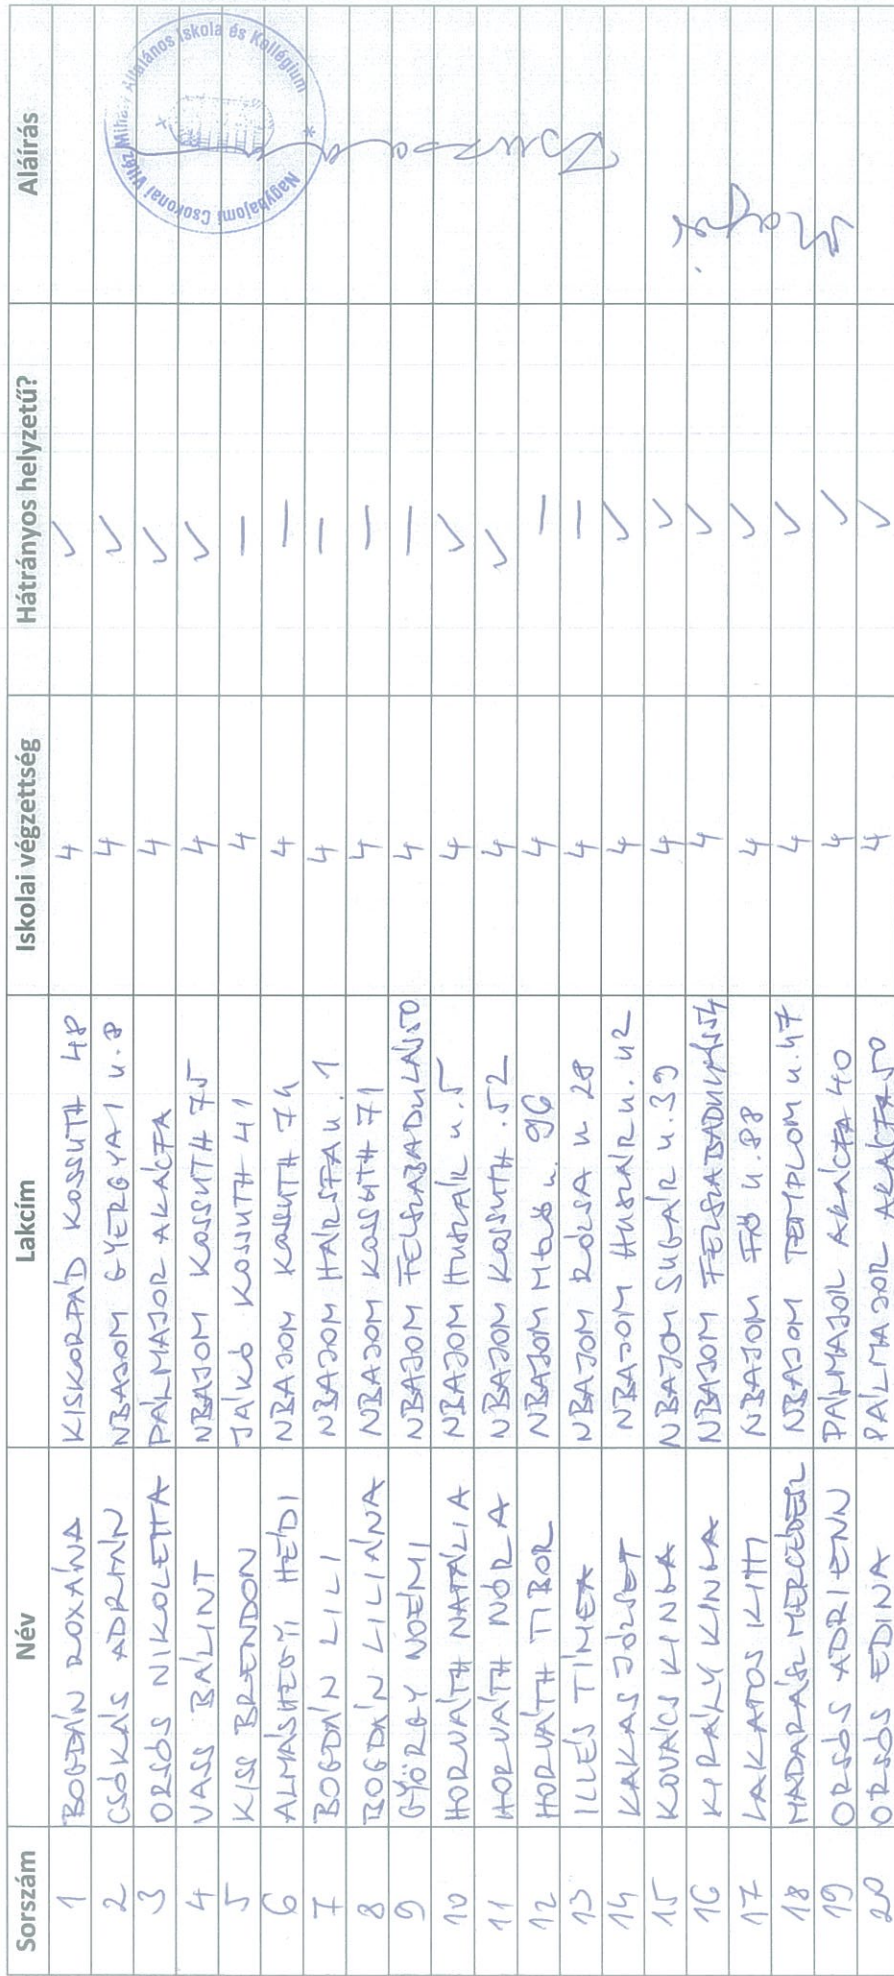 Sorszám Név Lakcím Iskolai végzettség Hátrányos helyzetű? Aláírás
1 BOGDÁN ROXÁNA KISKORPÁD KOSSUTH 48 4 ✓
2 CSÓKÁS ADRIÁN NBAJOM GYERGYAI u. 8 4 ✓
3 ORSÓS NIKOLETTA PÁLMAJOR AKÁCFA 4 ✓
4 VASS BÁLINT NBAJOM KOSSUTH 75 4 ✓
5 KISS BRENDON JÁKÓ KOSSUTH 41 4 –
6 ALMÁSHEGYI HÉDI NBAJOM KOSSUTH 74 4 –
7 BOGDÁN LILI NBAJOM HÁRSFA u. 1 4 –
8 BOGDÁN LILIÁNA NBAJOM KOSSUTH 71 4 –
9 GYÖRGY NOÉMI NBAJOM 4 –
10 HORVÁTH NATÁLIA NBAJOM HUSZÁR u. 5 4 ✓
11 HORVÁTH NÓRA NBAJOM KOSSUTH . 52 4 ✓
12 HORVÁTH TIBOR NBAJOM u. 96 4 –
13 ILLÉS TÍMEA NBAJOM RÓZSA u 28 4 –
14 KAKAS JÓZSEF NBAJOM HUSZÁR u. 42 4 ✓
15 KOVÁCS KINGA NBAJOM SUGÁR u. 39 4 ✓
16 KIRÁLY KINGA NBAJOM 4 ✓
17 LAKATOS KITTI NBAJOM FŐ u. 88 4 ✓
18 MADARÁSZ MERCÉDESZ NBAJOM TEMPLOM u. 47 4 ✓
19 ORSÓS ADRIENN PÁLMAJOR AKÁCFA 40 4 ✓
20 ORSÓS EDINA PÁLMAJOR AKÁCFA 50 4 ✓
Nagybajomi Csokonai Vitéz Mihály Általános Iskola és Kollégium *